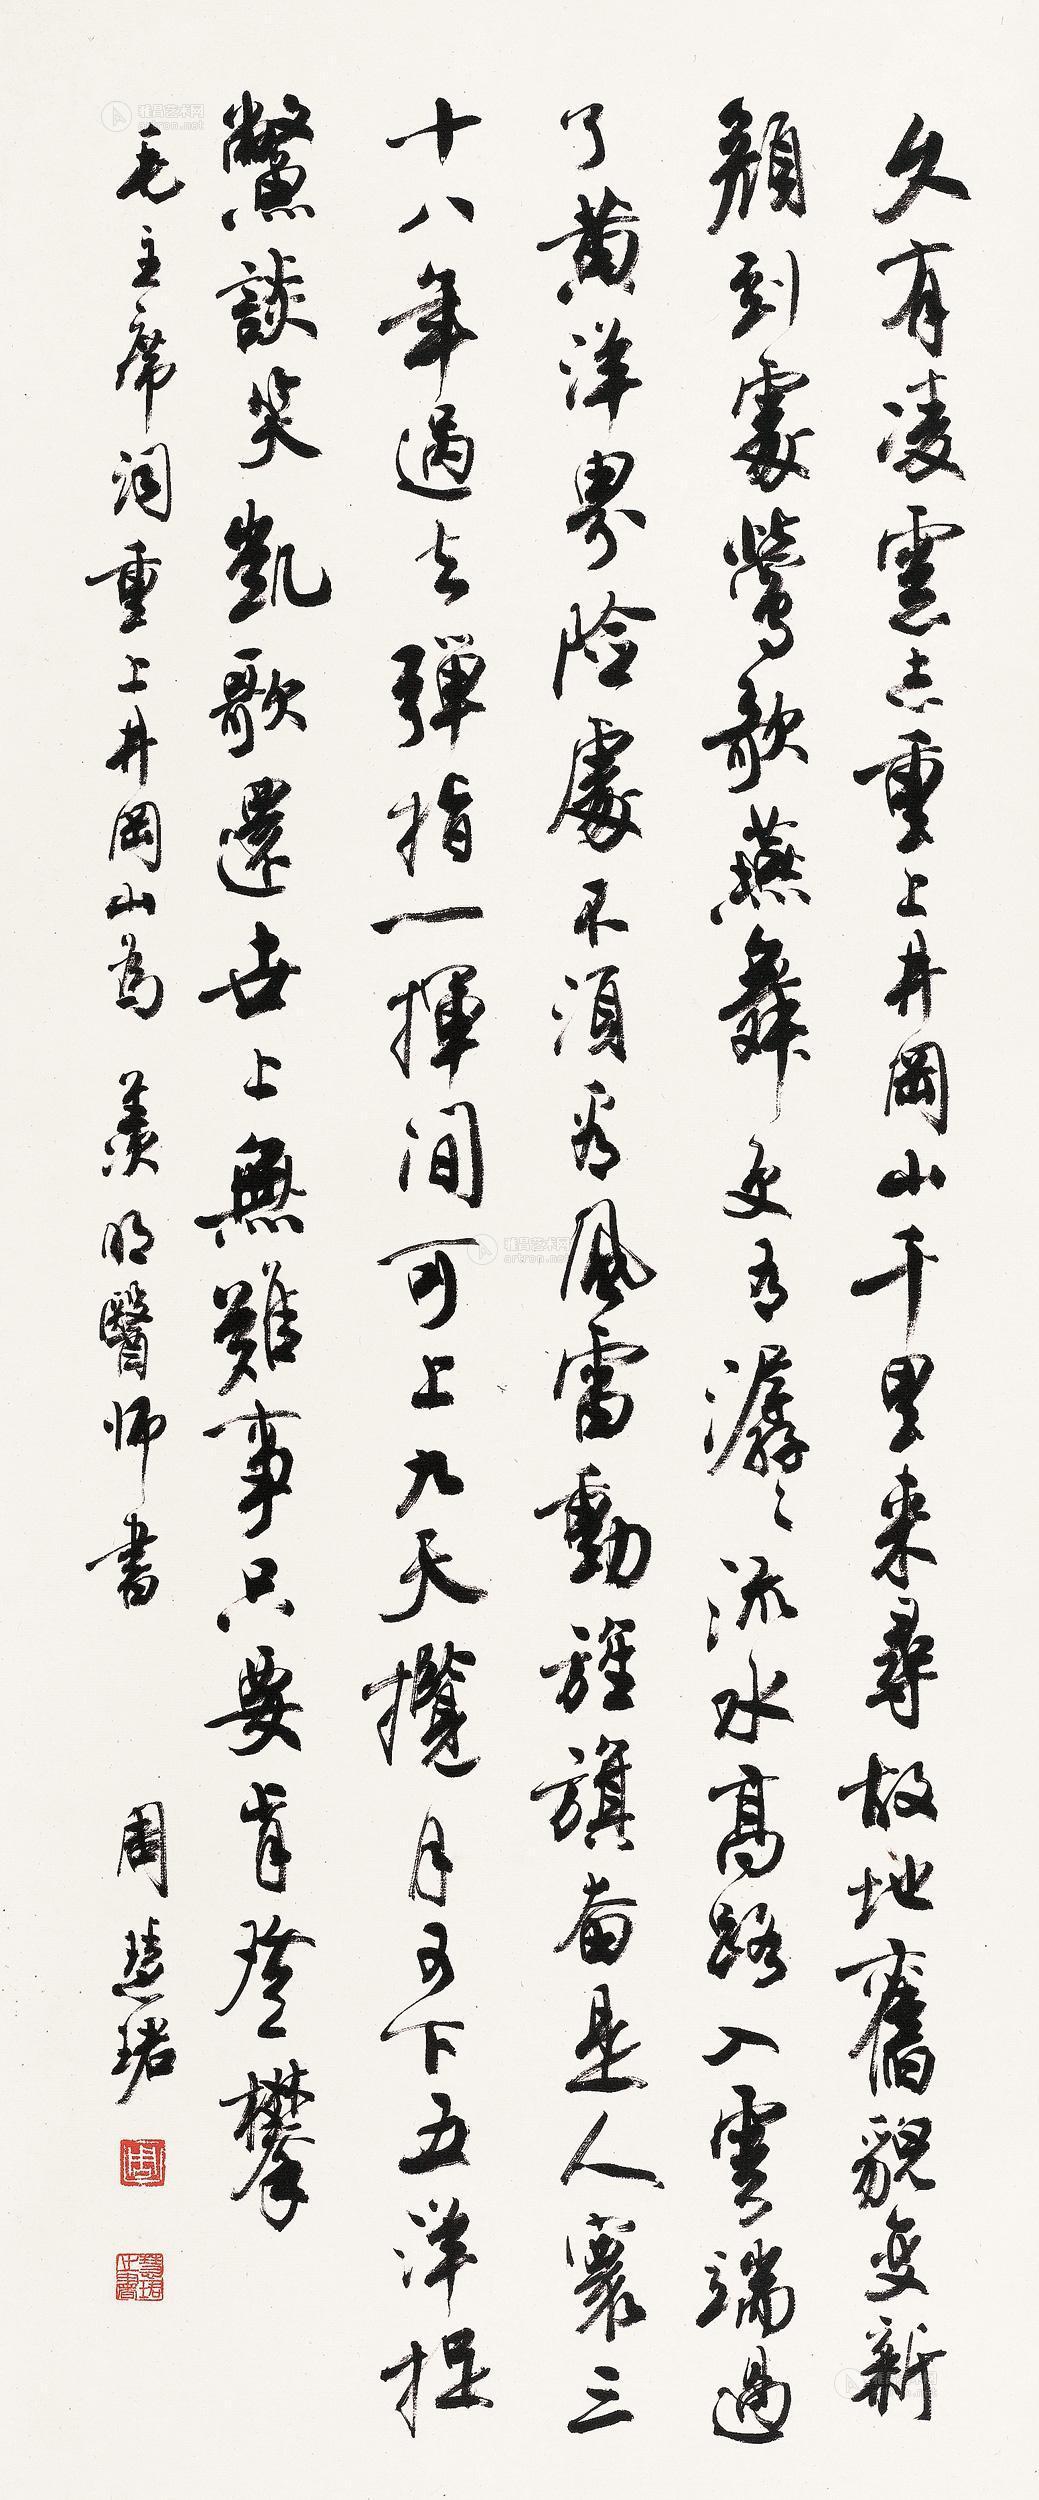 久有凌雲志重上井岡山千里来尋故地舊貌变新
顏到處鶯歌燕舞更有潺〻流水高路入雲端過
了黄洋界险處不須看風雷動旌旗奋是人寰三
十八年過去彈指一揮间可上九天攬月可下五洋捉
鱉談笑凱歌還世上無難事只要肯登攀
毛主席詞重上井岡山為 羨明醫师書 周慧珺
雅昌艺术网
artron.net
雅昌艺术网
artron.net